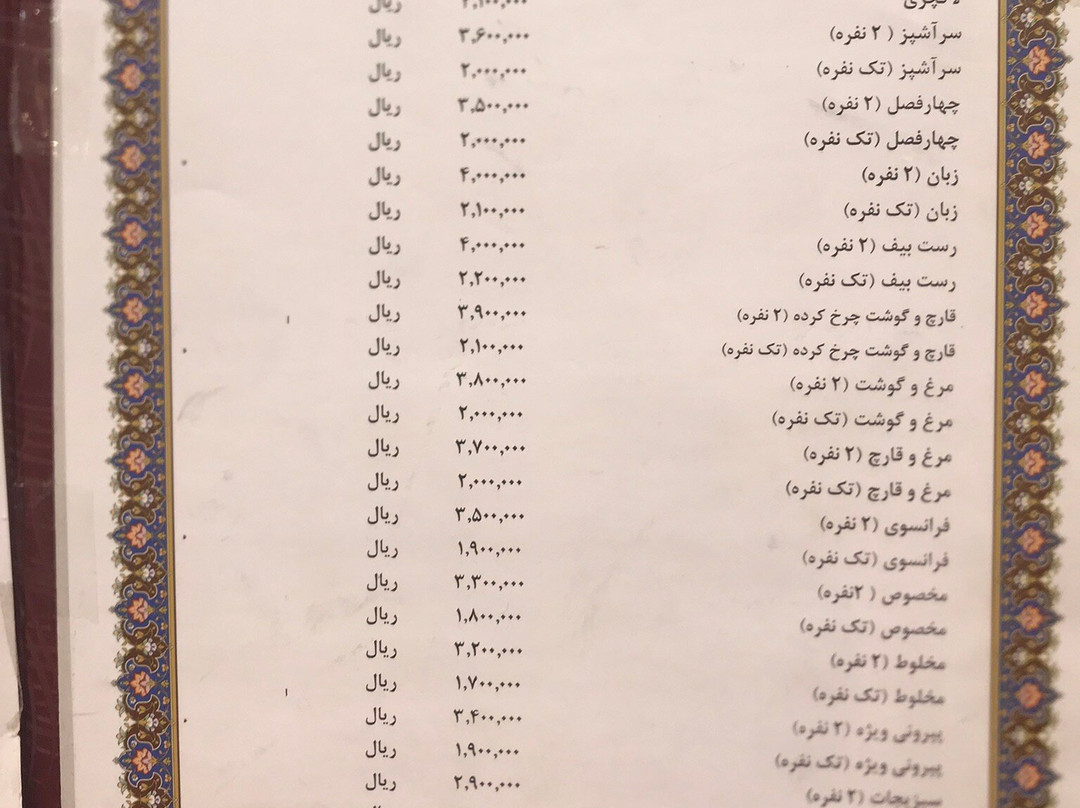 سرآشپز ( ۲ نفره) ۳,۶۰۰,۰۰۰ ریال
سرآشپز (تک نفره) ۲,۰۰۰,۰۰۰ ریال
چهارفصل (۲ نفره) ۳,۵۰۰,۰۰۰ ریال
چهارفصل (تک نفره) ۲,۰۰۰,۰۰۰ ریال
زبان (۲ نفره) ۴,۰۰۰,۰۰۰ ریال
زبان (تک نفره) ۲,۱۰۰,۰۰۰ ریال
رست بیف (۲ نفره) ۴,۰۰۰,۰۰۰ ریال
رست بیف (تک نفره) ۲,۲۰۰,۰۰۰ ریال
قارچ و گوشت چرخ کرده (۲ نفره) ۳,۹۰۰,۰۰۰ ریال
قارچ و گوشت چرخ کرده (تک نفره) ۲,۱۰۰,۰۰۰ ریال
مرغ و گوشت (۲ نفره) ۳,۸۰۰,۰۰۰ ریال
مرغ و گوشت (تک نفره) ۲,۰۰۰,۰۰۰ ریال
مرغ و قارچ (۲ نفره) ۳,۷۰۰,۰۰۰ ریال
مرغ و قارچ (تک نفره) ۲,۰۰۰,۰۰۰ ریال
فرانسوی (۲ نفره) ۳,۵۰۰,۰۰۰ ریال
فرانسوی (تک نفره) ۱,۹۰۰,۰۰۰ ریال
مخصوص ( ۲نفره) ۳,۳۰۰,۰۰۰ ریال
مخصوص (تک نفره) ۱,۸۰۰,۰۰۰ ریال
مخلوط (۲ نفره) ۳,۲۰۰,۰۰۰ ریال
مخلوط (تک نفره) ۱,۷۰۰,۰۰۰ ریال
پپرونی ویژه (۲ نفره) ۳,۴۰۰,۰۰۰ ریال
پپرونی ویژه (تک نفره) ۱,۹۰۰,۰۰۰ ریال
سبزیجات (۲ نفره) ۲,۹۰۰,۰۰۰ ریال